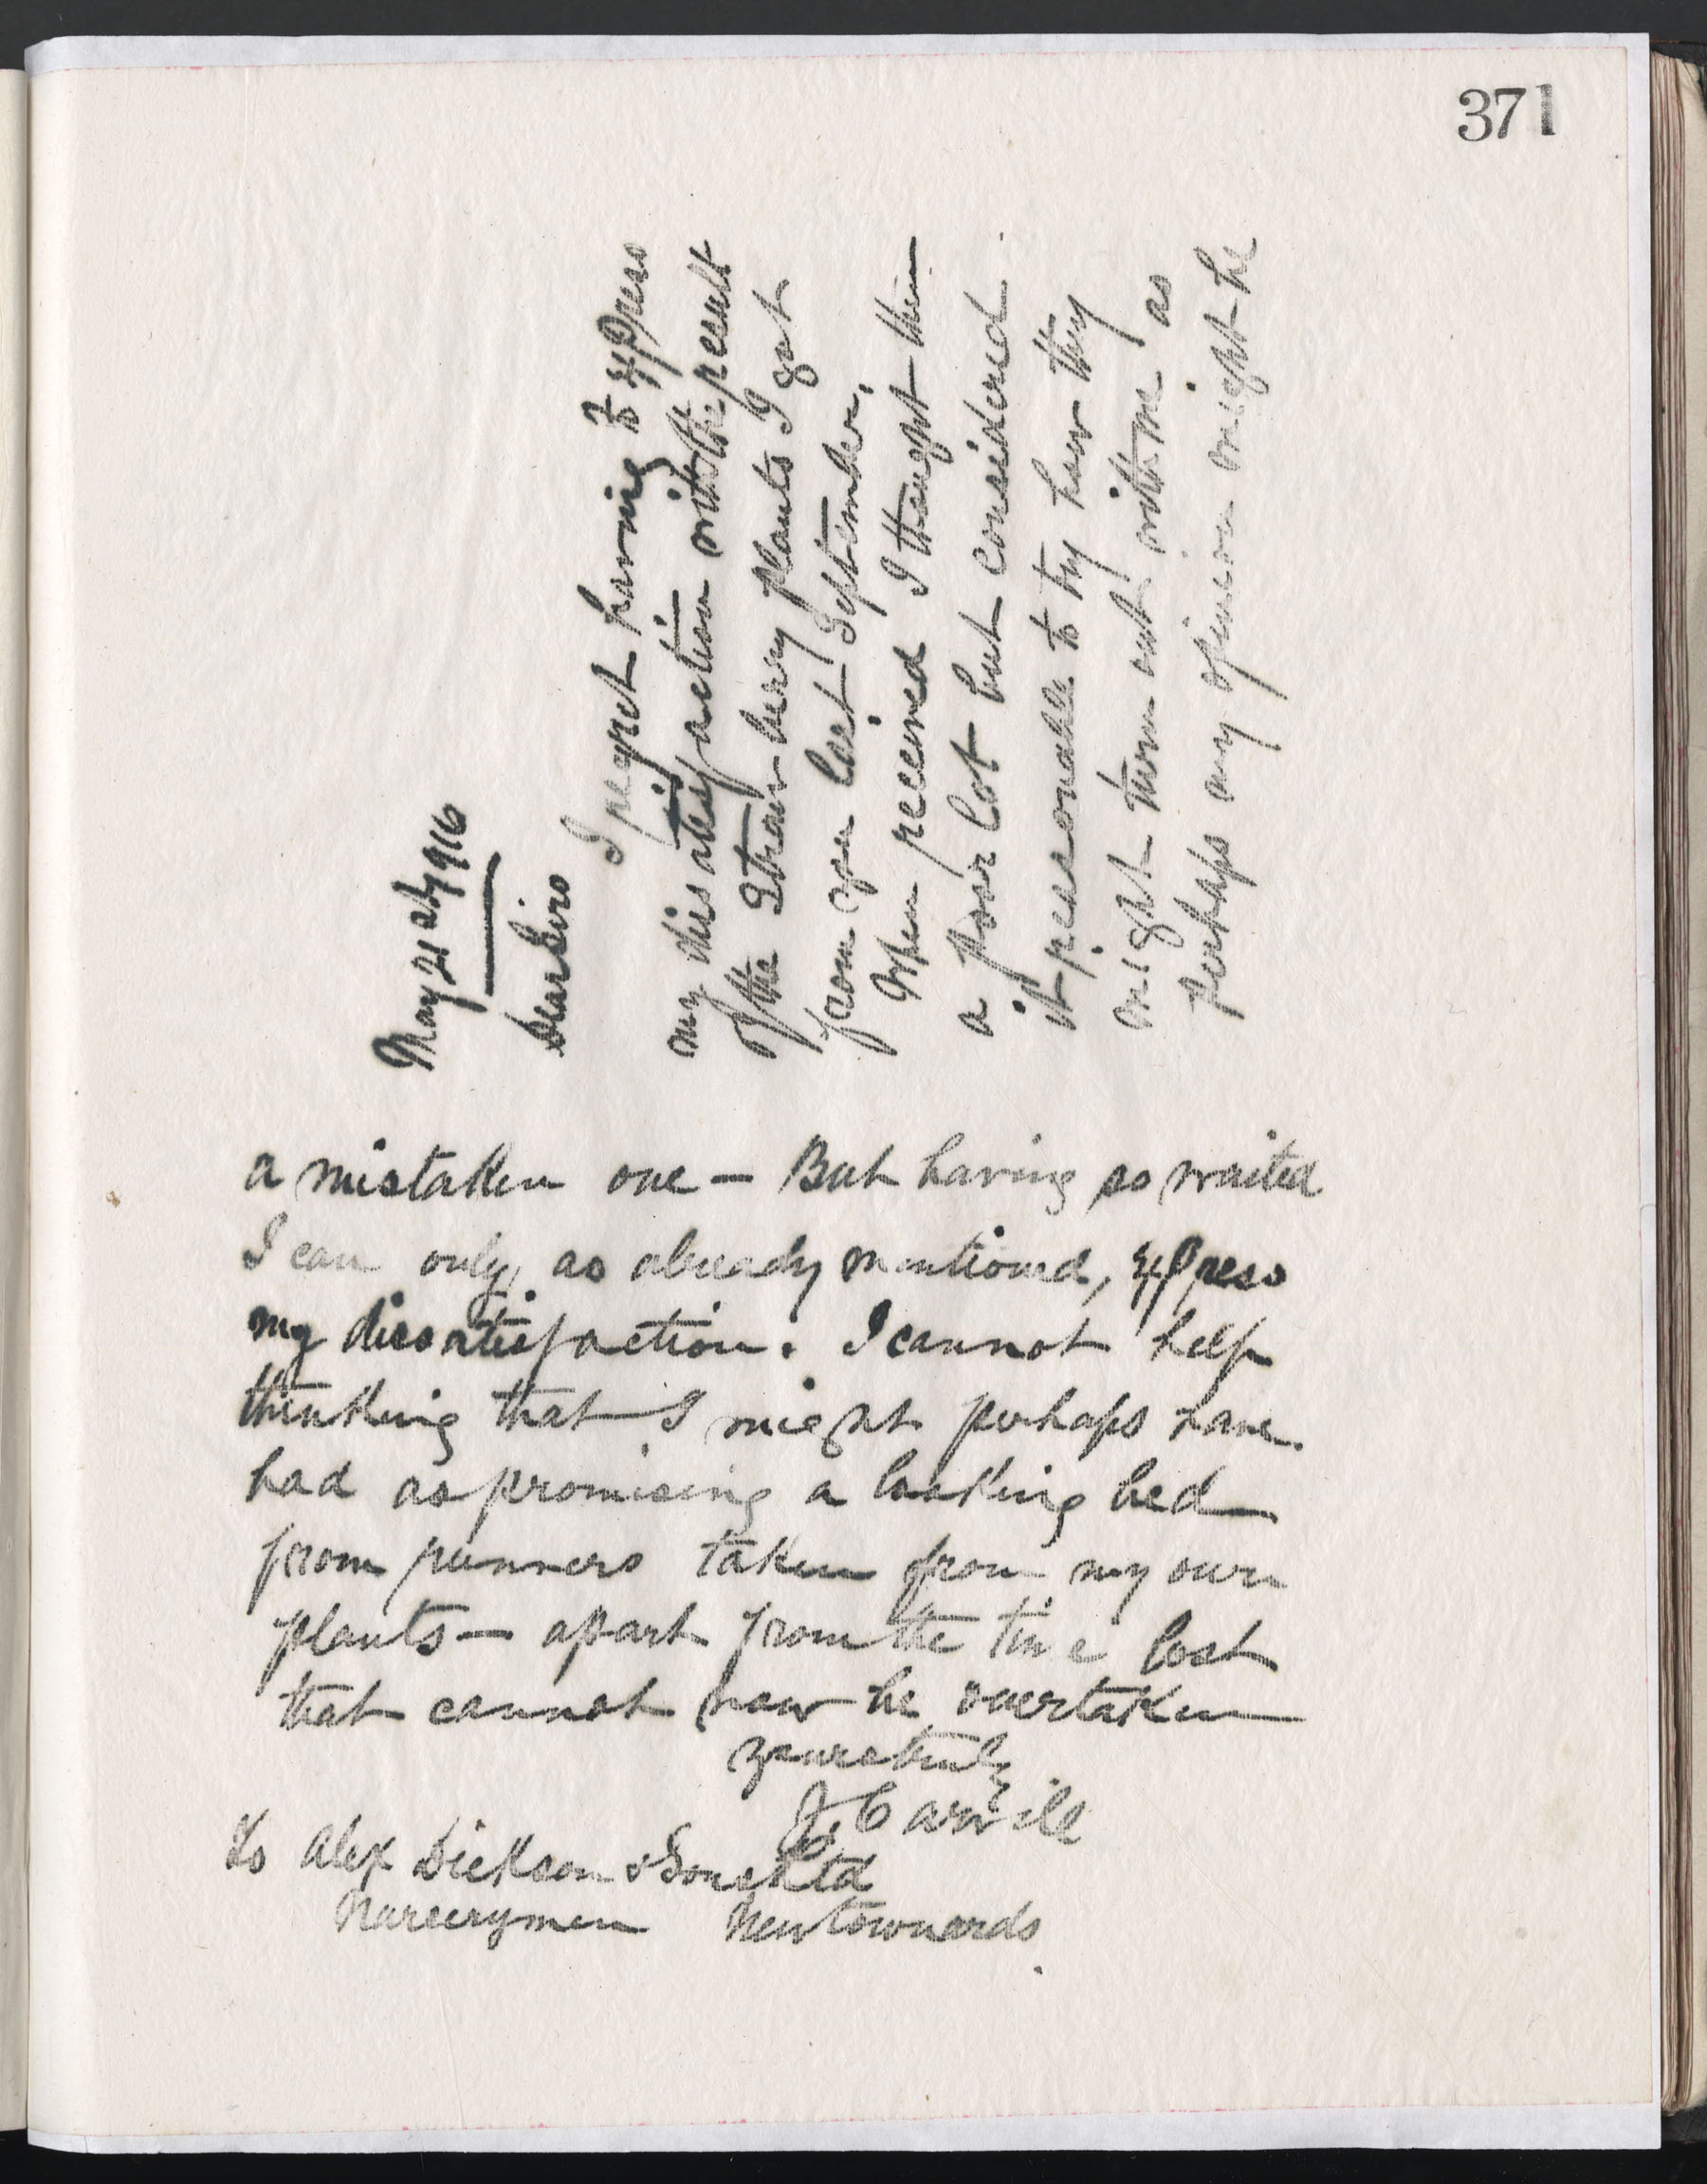 371
May 21st, 1916
Dear Sirs
I regret having to express
my dissatisfaction with the result
of the Strawberry plants I got
from you last September.
When received I thought them
a poor lot but considered
it reasonable to try how they
might turn out with me as
perhaps my opinion might be
a mistaken one — But having so waited
I can only, as already mentioned, express
my dissatisfaction. I cannot help
thinking that I might perhaps have
had as promising a looking bed
from runners taken from my own
plants — apart from the time lost
that cannot now be overtaken
yours truly
J. Carvill
To Alex Dickson & Sons Ltd
Nurserymen Newtownards.